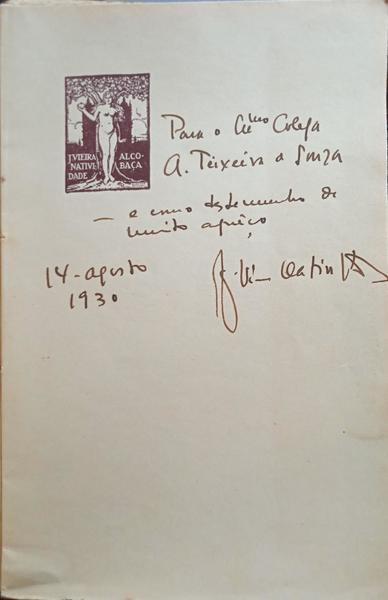 J VIEIRA
NATIVI
DADE
ALCO-
BAÇA
Para o Ex.mo Colega
A. Teixeira de Souza
— e como testemunho de
muito apreço,
14-agosto
1930